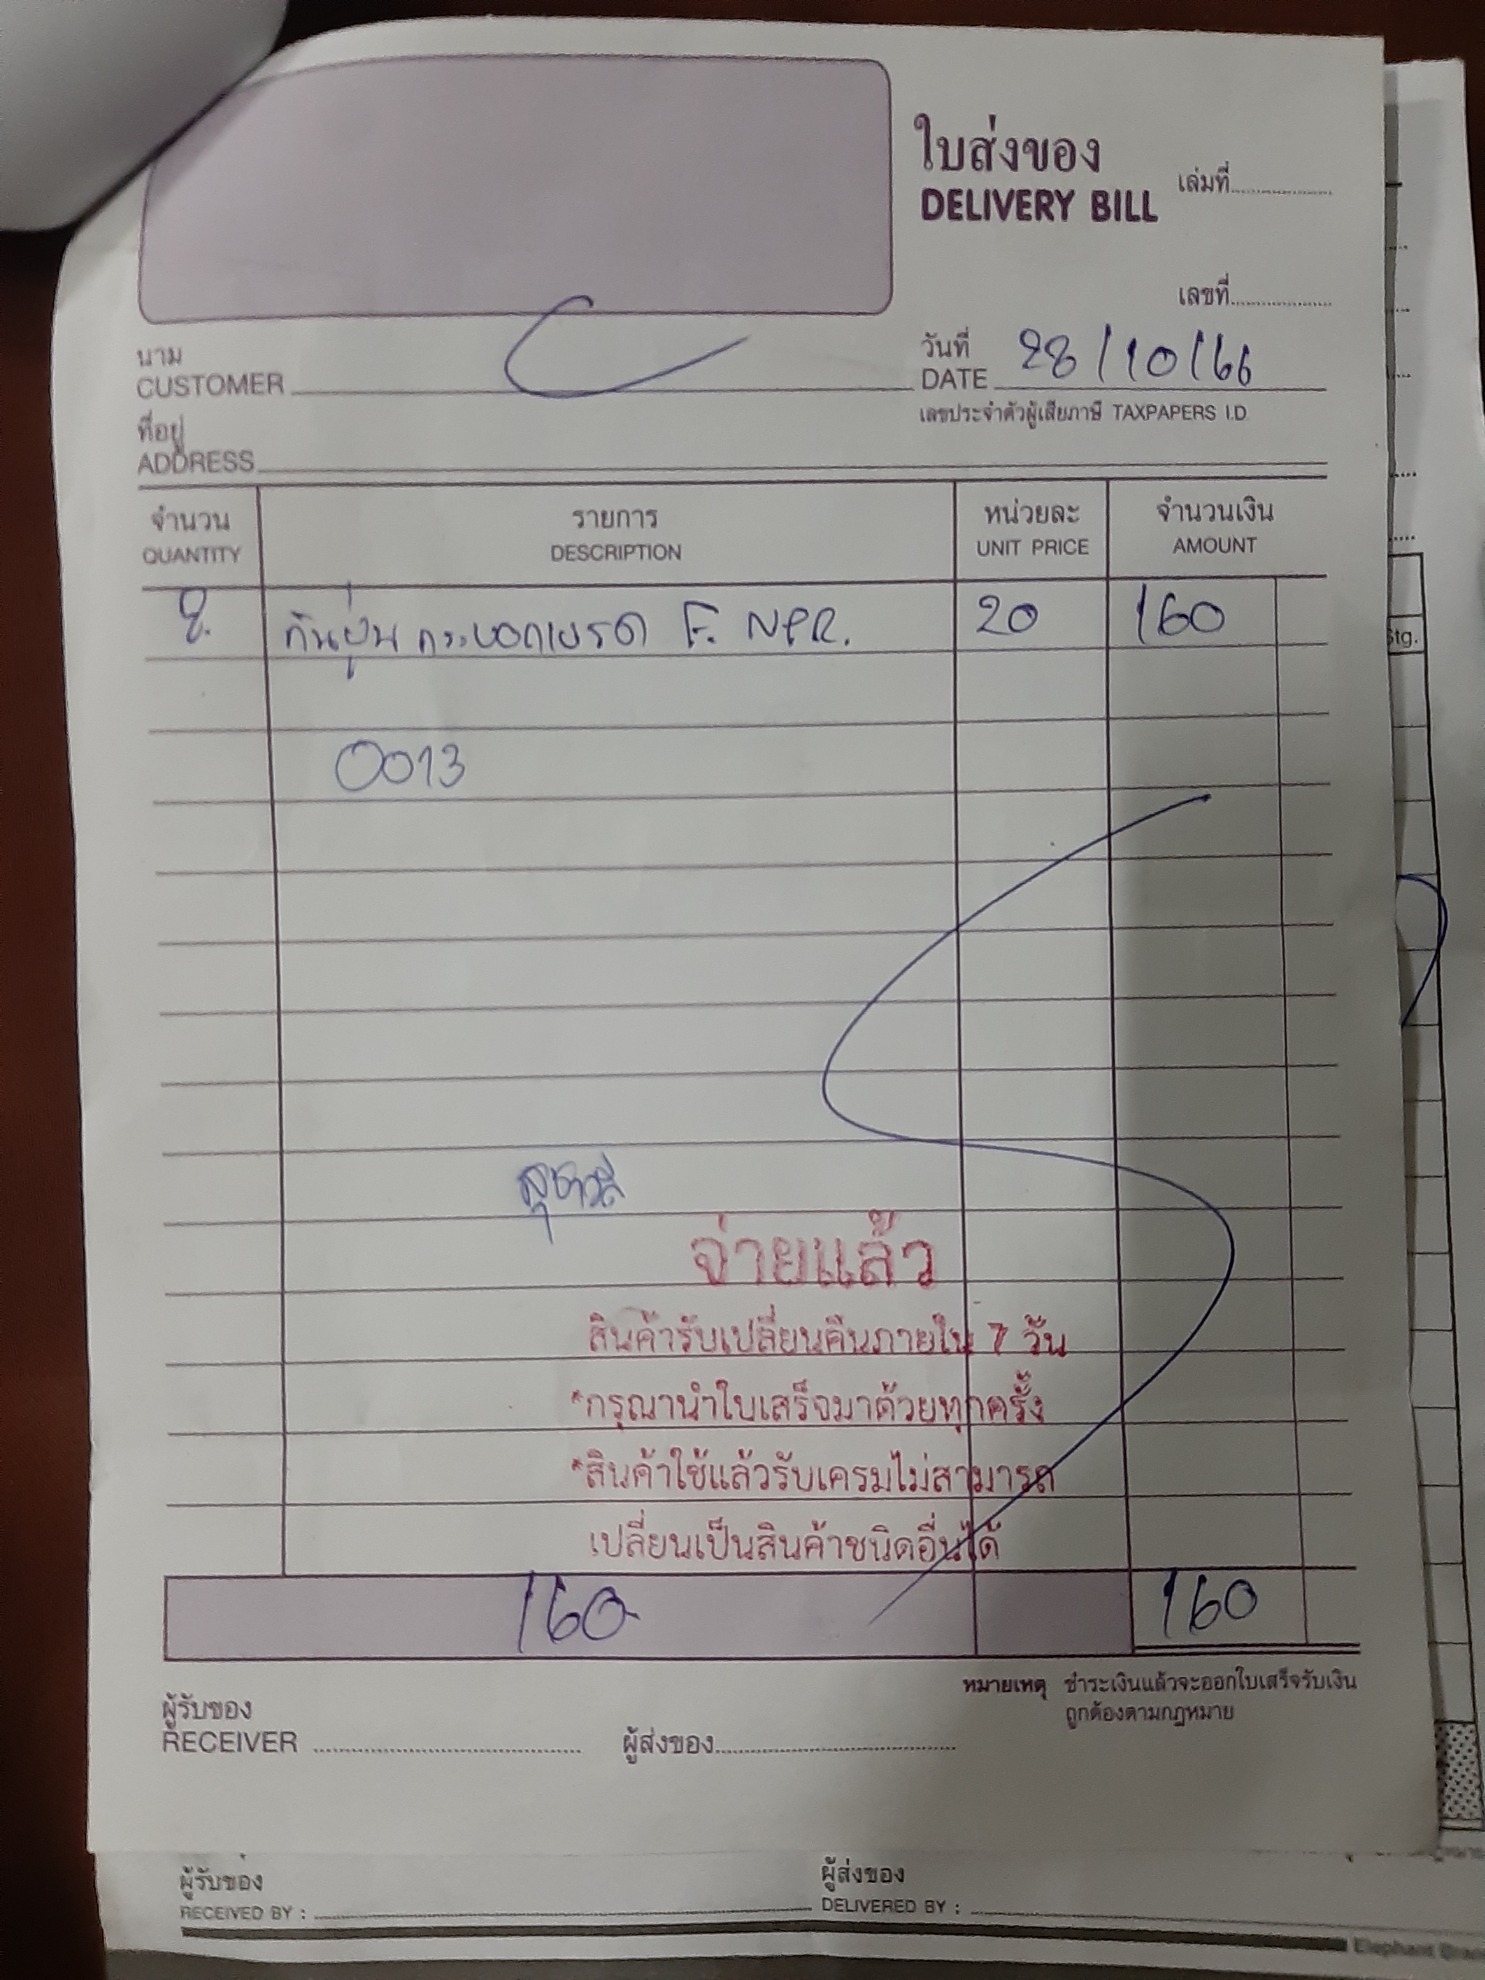 ใบส่งของ
DELIVERY BILL
เล่มที่
เลขที่
นาม
CUSTOMER
วันที่
DATE 28/10/66
เลขประจำตัวผู้เสียภาษี TAXPAPERS I.D
ที่อยู่
ADDRESS
จำนวน รายการ หน่วยละ จำนวนเงิน
QUANTITY DESCRIPTION UNIT PRICE AMOUNT
8. กันฝุ่นกระบอกเบรค F. NPR. 20 160
0013
จ่ายแล้ว
สินค้ารับเปลี่ยนคืนภายใน 7 วัน
*กรุณานำใบเสร็จมาด้วยทุกครั้ง
*สินค้าใช้แล้วรับเครมไม่สามารถ
เปลี่ยนเป็นสินค้าชนิดอื่นได้
160 160
หมายเหตุ ชำระเงินแล้วจะออกใบเสร็จรับเงิน
ถูกต้องตามกฎหมาย
ผู้รับของ
RECEIVER ผู้ส่งของ
ผู้รับของ ผู้ส่งของ
RECEIVED BY : DELIVERED BY :
Stg.